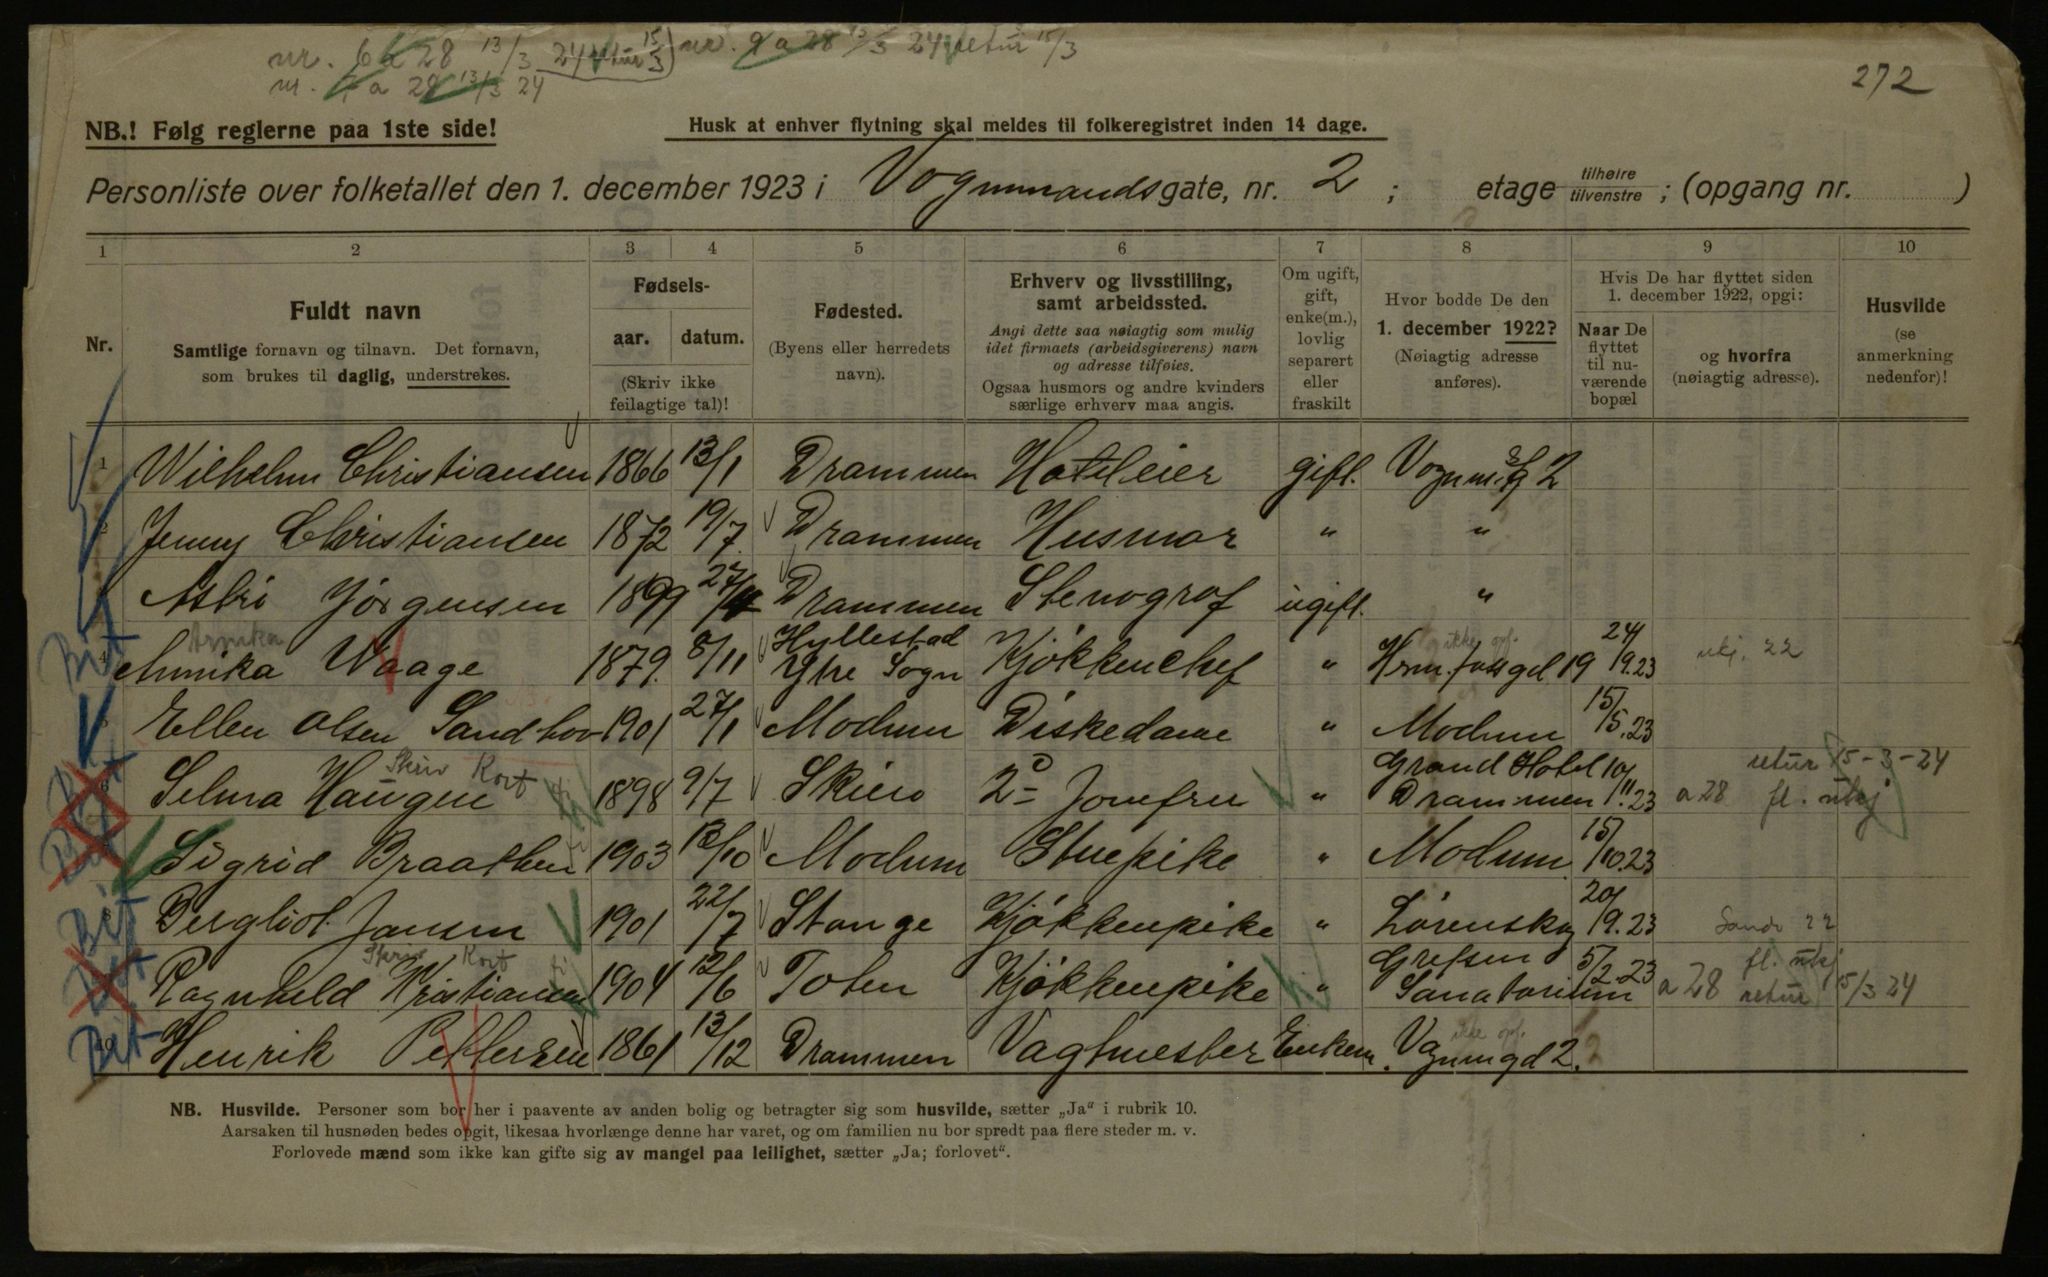 nr. 6 a 28 13/3 24 retur 15/3) nr. 9 a 28 13/3 24 retur 15/3
nr. 7 a 28 13/3 24
272
NB.! Følg reglerne paa 1ste side!
Husk at enhver flytning skal meldes til folkeregistret inden 14 dage.
Personliste over folketallet den 1. december 1923 i Vognmandsgate, nr. 2; etage tilhøire tilvenstre; (opgang nr. )
1 2 3 4 5 6 7 8 9 10
Nr.
Fuldt navn
Samtlige fornavn og tilnavn. Det fornavn,
som brukes til daglig, understrekes.
Fødsels-
aar. datum.
(Skriv ikke
feilagtige tal)!
Fødested.
(Byens eller herredets
navn).
Erhverv og livsstilling,
samt arbeidssted.
Angi dette saa nøiagtig som mulig
idet firmaets (arbeidsgiverens) navn
og adresse tilføies.
Ogsaa husmors og andre kvinders
særlige erhverv maa angis.
Om ugift,
gift,
enke(m.),
lovlig
separert
eller
fraskilt
Hvor bodde De den
1. december 1922?
(Nøiagtig adresse
anføres).
Hvis De har flyttet siden
1. december 1922, opgi:
Naar De
flyttet
til nu-
værende
bopæl
og hvorfra
(nøiagtig adresse).
Husvilde
(se
anmerkning
nedenfor)!
1 Wilhelm Christiansen 1866 13/1 Drammen Hoteleier gift. Vognm.g 2
2 Jenny Christiansen 1872 19/7 Drammen Husmor " "
Astri Jørgensen 1899 27/4 Drammen Stenograf ugift. "
Annika
Bit 4 Annika Waage 1879. 8/11 Hyllestad Ytre Sogn Kjøkkenchef " ikke opf. Krm. fossgd 19 24/9.23 ukj. 22
5 Ellen Olsen Sandhov 1901 27/1 Modum Diskedame " Modum 15/5.23
6 Selma Haugen Skriv Kort 1898 9/7 Skien 2- Jomfru " Grand Hotel Drammen 10/11.23 a 28 fl. ukj retur 15-3-24
Sigrid Braathen 1903 13/10 Modum Stuepike " Modum 15/10.23
Bit 8 Bergliot Jansen 1901 22/7 Stange Kjøkkenpike " Lørenskog 20/9.23 22
Ragnhild Kristiansen Skriv Kort 1904 12/6 Toten Kjøkkenpike " Grefsen Sanatorium 5/2-23 a 28 fl. ukj retur 15/3 24
Bit 10 Henrik Pettersen 1861 13/12 Drammen Vagtmester Enkem. ikke opf. Vognmgd 2.
NB. Husvilde. Personer som bor her i paavente av anden bolig og betragter sig som husvilde, sætter „Ja" i rubrik 10.
Aarsaken til husnøden bedes opgit, likesaa hvorlænge denne har varet, og om familien nu bor spredt paa flere steder m. v.
Forlovede mænd som ikke kan gifte sig av mangel paa leilighet, sætter „Ja; forlovet".